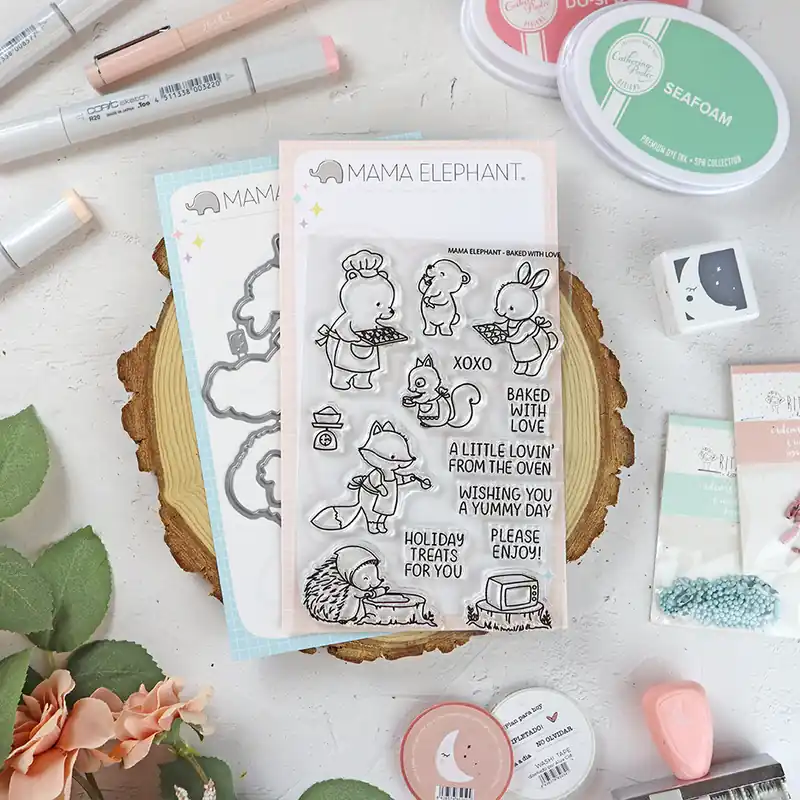 COPIC sketch
.Too
4 511338 003220
R20
DO-SI-
Catherine Pooler
DESIGNS
Catherine Pooler
DESIGNS
SEAFOAM
PREMIUM DYE INK • SPA COLLECTION
MAMA ELEPHANT
MAMA
MAMA ELEPHANT - BAKED WITH LOVE
XOXO
BAKED
WITH
LOVE
A LITTLE LOVIN'
FROM THE OVEN
WISHING YOU
A YUMMY DAY
HOLIDAY
TREATS
FOR YOU
PLEASE
ENJOY!
¡Plan para hoy
MPLETADO!
NO OLVIDAR
a día
WASHI TAPE